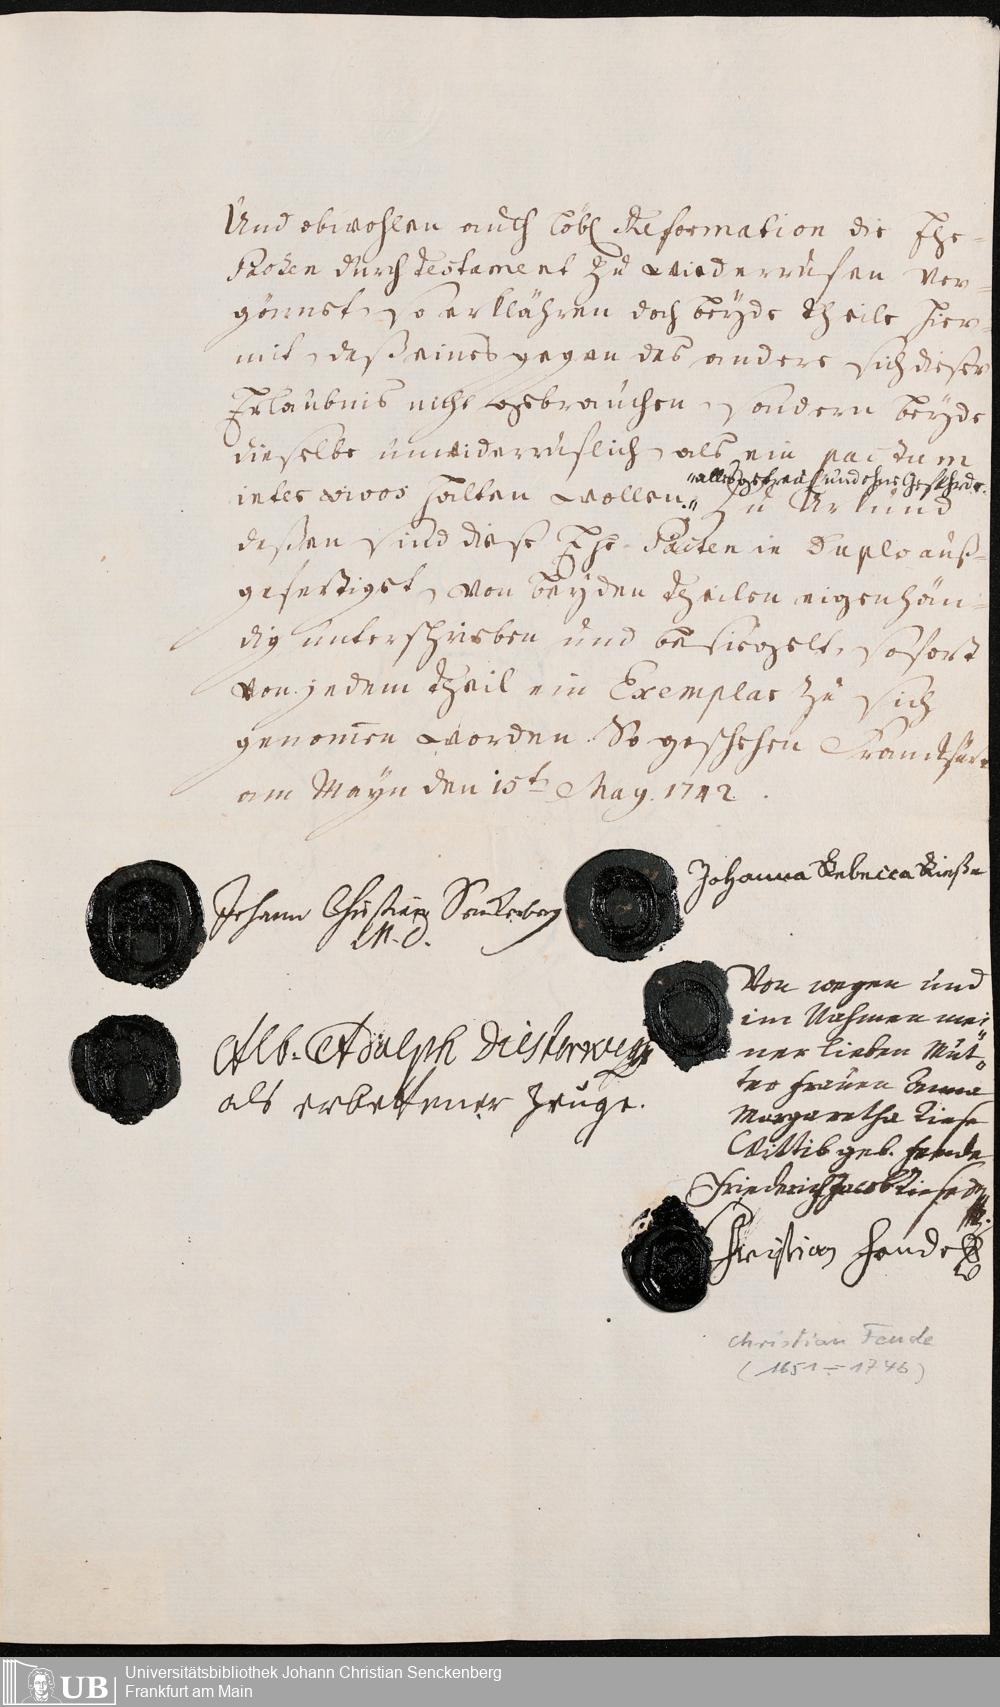 Und obwohlen auch löbl. Reformation die Ehe-
Pacten durch Testament zu wiederrufen ver-
gönnet, so erklähren doch beyde theile hier-
mit, daß eines gegen das andere sich dieser
Erlaubnis nicht gebrauchen, sondern beyde
dieselbe unwiderruflich, als ein pactum
inter vivos halten wollen. Zu Urkund
alles getreul. und ohne Gefehrde.
deßen sind diese Ehe-Pacten in Duplo auß-
gefertiget, von beyden theilen eigenhän-
dig unterschrieben und besiegelt, sofort
von jedem theil ein Exemplar zu sich
genom̄en worden. So geschehen Franckfurt
am Mayn den 15t. May. 1742.
Johann Christian Senckenberg
M. D.
Johanna Rebecca Rieße
Alb. Adolph Diesterweg
als erbettener Zeuge.
Von wegen und
im Nahmen mei-
ner lieben Mut-
ter Frauen Anna
Margaretha Riese
Wittib geb. Fende
Friederich Jacob Riese
Christian Fende
Christian Fende
(1651-1746)
UB
Universitätsbibliothek Johann Christian Senckenberg
Frankfurt am Main